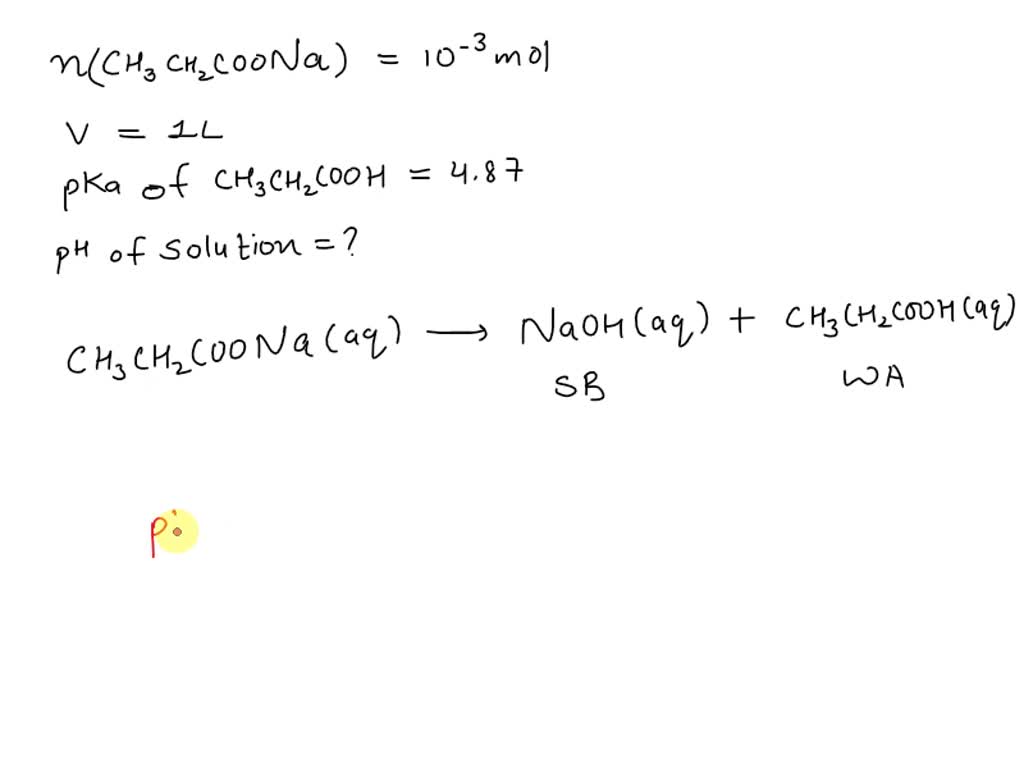 n(CH₃CH₂COONa) = 10⁻³ mol
V = 1L
pKa of CH₃CH₂COOH = 4.87
pH of solution = ?
CH₃CH₂COONa(aq) ⟶ NaOH(aq) + CH₃CH₂COOH(aq)
SB WA